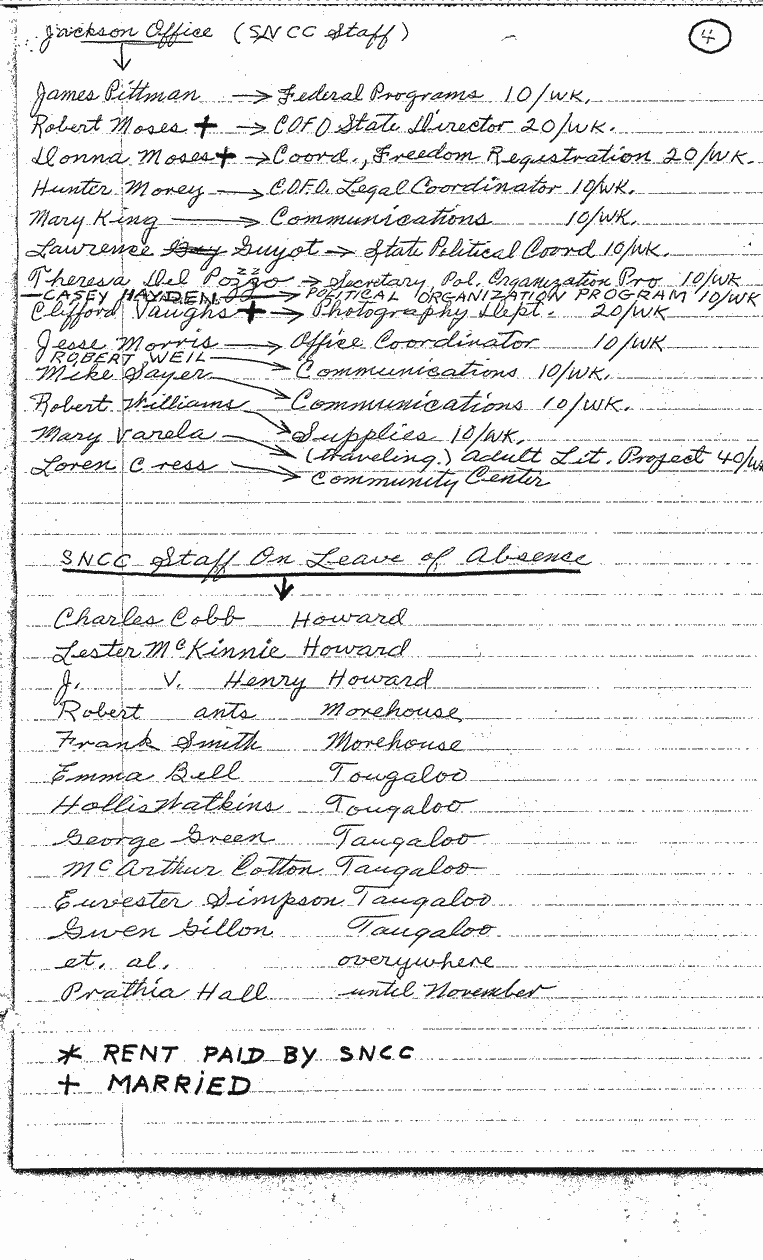 Jackson Office (SNCC Staff)
4
James Pittman → Federal Programs 10/WK.
Robert Moses + → COFO State Director 20/WK.
Donna Moses + → Coord., Freedom Registration 20/WK.
Hunter Morey → C.O.F.O. Legal Coordinator 10/WK.
Mary King → Communications 10/WK.
Lawrence Guy Guyot → State Political Coord 10/WK.
Theresa Del Pozzo → Secretary, Pol. Organization Pro 10/WK
CASEY HAYDEN → POLITICAL ORGANIZATION PROGRAM 10/WK
Clifford Vaughs + → Photography Dept. 20/WK
Jesse Morris → Office Coordinator 10/WK
ROBERT WEIL → Communications 10/WK.
Mike Sayer → Communications 10/WK.
Robert Williams → Supplies 10/WK.
Mary Varela → (traveling.) adult Lit. Project 40/WK
Loren Cress → Community Center
SNCC Staff On Leave of Absence
↓
Charles Cobb Howard
Lester McKinnie Howard
J. V. Henry Howard
Robert ants Morehouse
Frank Smith Morehouse
Emma Bell Tougaloo
Hollis Watkins Tougaloo
George Green Taugaloo
McArthur Cotton Taugaloo
Euvester Simpson Taugaloo
Gwen Gillon Taugaloo
et. al. overywhere
Prathia Hall until November
* RENT PAID BY SNCC
+ MARRIED